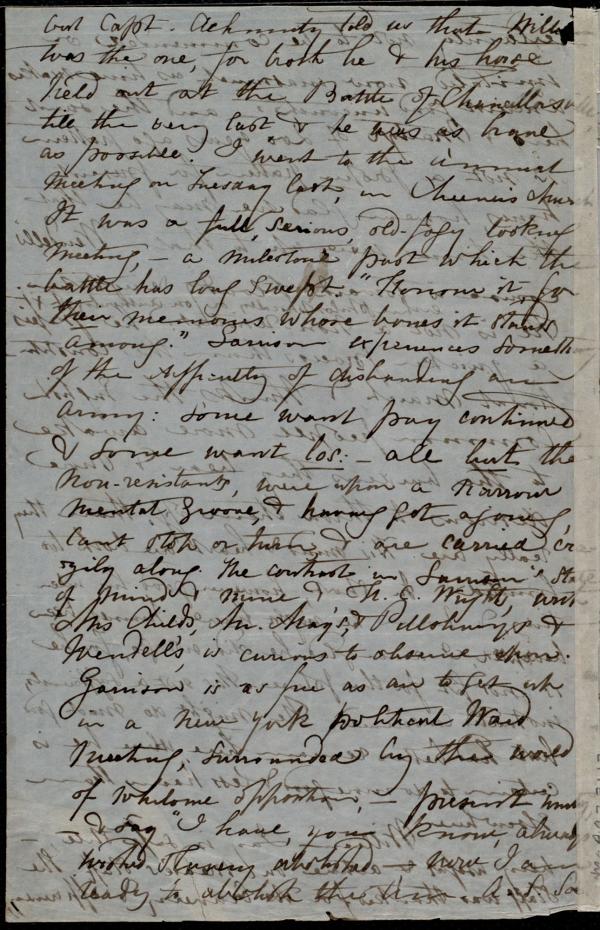 but Capt. told us that
was the one, for both he & his horse
held out at the Battle of Chancellors
till the very last & he was as brave
as possible. I went to the annual
meeting on Tuesday last, in church
It was a full, serious, old-fogy looking
meeting, — a milestone past which the
battle has long swept. "Honour it for
their memories whose bones it stands
among." Garrison experiences someth
of the difficulty of disbanding an
army: some want pay continued
& some want los: — all but the
Non-resistants, were upon a narrow
mental groove, & having got agoing,
cant stop or turn & are carried
along. The contrast in Garrison's
of mind & mine & H. C. Wright,
Mrs Childs, Mr. May's, & Pillsbury's &
Wendell's, is curious to observe upon.
Garrison is as free as air to get up
in a New York political Ward
Meeting, surrounded by this world
of whilome opposition, — present
& say "I have, you know, always
wished slavery abolished — now I a
ready to abolish the A. S. So